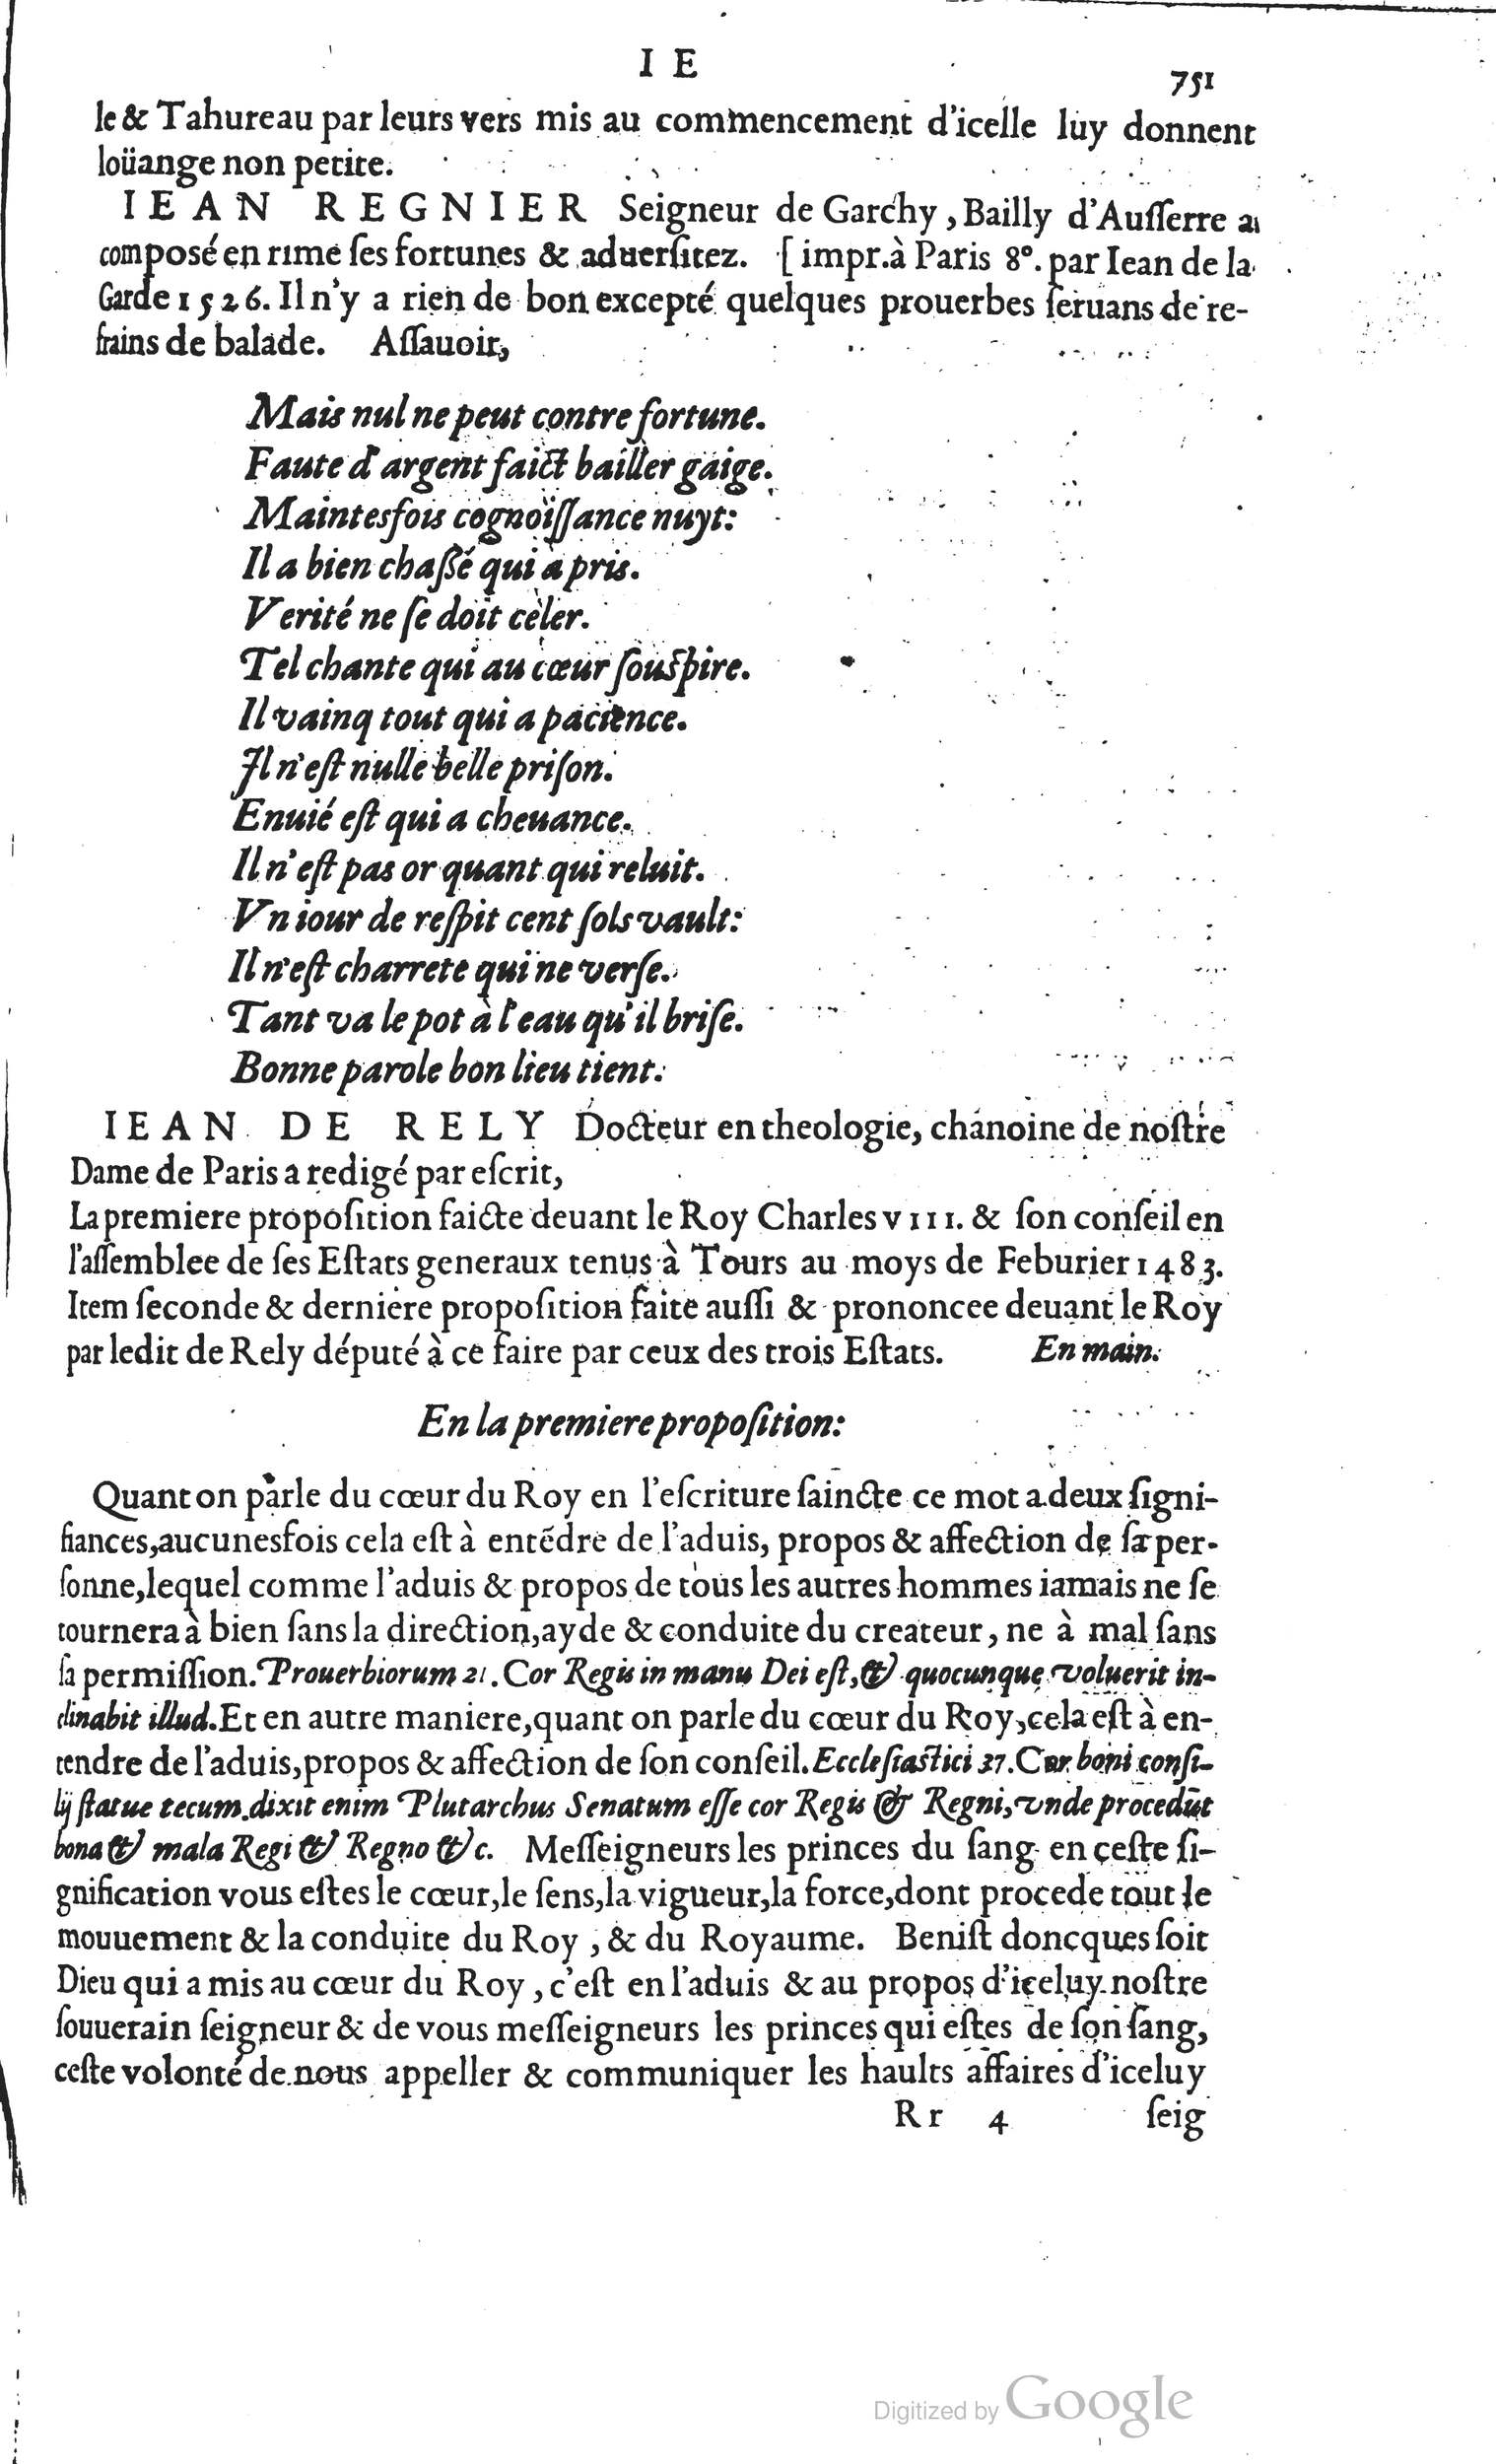 I E
751
le & Tahureau par leurs vers mis au commencement d'icelle luy donnent
loüange non petite.
IEAN REGNIER Seigneur de Garchy, Bailly d'Auſſerre a
composé en rime ſes fortunes & aduerſitez. [impr. à Paris 8°. par Iean de la
Garde 1526. Il n'y a rien de bon excepté quelques prouerbes ſeruans de re-
frains de balade. Aſſauoir,
Mais nul ne peut contre fortune.
Faute d'argent faict bailler gaige.
Maintesfois cognoiſſance nuyt:
Il a bien chaſſé qui a pris.
Verité ne ſe doit celer.
Tel chante qui au cœur ſouſpire.
Il vainq tout qui a pacience.
Il n'eſt nulle belle priſon.
Enuié eſt qui a cheuance.
Il n'eſt pas or quant qui reluit.
Vn iour de reſpit cent ſols vault:
Il n'eſt charrete qui ne verſe.
Tant va le pot à l'eau qu'il briſe.
Bonne parole bon lieu tient.
IEAN DE RELY Docteur en theologie, chanoine de noſtre
Dame de Paris a redigé par eſcrit,
La premiere propoſition faicte deuant le Roy Charles VIII. & ſon conſeil en
l'aſſemblee de ſes Eſtats generaux tenus à Tours au moys de Feburier 1483.
Item ſeconde & derniere propoſition faite auſſi & prononcee deuant le Roy
par ledit de Rely député à ce faire par ceux des trois Eſtats. En main.
En la premiere propoſition:
Quant on parle du cœur du Roy en l'eſcriture ſaincte ce mot a deux ſigni-
fiances, aucunesfois cela eſt à entẽdre de l'aduis, propos & affection de ſa per-
ſonne, lequel comme l'aduis & propos de tous les autres hommes iamais ne ſe
tournera à bien ſans la direction, ayde & conduite du createur, ne à mal ſans
ſa permiſſion. Prouerbiorum 21. Cor Regis in manu Dei eſt, & quocunque voluerit in-
clinabit illud. Et en autre maniere, quant on parle du cœur du Roy, cela eſt à en-
tendre de l'aduis, propos & affection de ſon conſeil. Eccleſiaſtici 37. Cor boni conſi-
lij ſtatue tecum. dixit enim Plutarchus Senatum eſſe cor Regis & Regni, vnde procedūt
bona & mala Regi & Regno &c. Meſſeigneurs les princes du ſang en ceſte ſi-
gnification vous eſtes le cœur, le ſens, la vigueur, la force, dont procede tout le
mouuement & la conduite du Roy, & du Royaume. Beniſt doncques ſoit
Dieu qui a mis au cœur du Roy, c'eſt en l'aduis & au propos d'iceluy noſtre
ſouuerain ſeigneur & de vous meſſeigneurs les princes qui eſtes de ſon ſang,
ceſte volonté de nous appeller & communiquer les haults affaires d'iceluy
Rr 4 ſeig
Digitized by Google